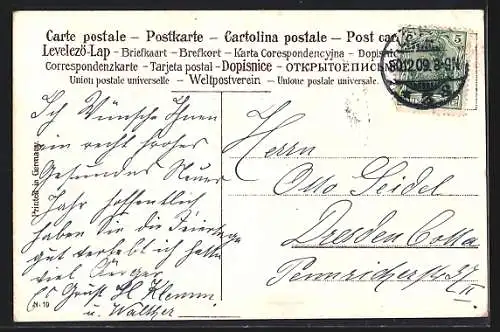 Carte postale – Postkarte – Cartolina postale – Post car
Levelező-Lap – Briefkaart – Brefkort – Karta Corespondencyjna – Dopisnic
Correspondenzkarte – Tarjeta postal – Dopisnice – ОТКРЫТОЕПИСЬМ
Union postale universelle – Weltpostverein – Unione postale universale.
5
30.12.09. 8-9N
Printed in Germany
Ich Wünsche Ihnen
ein recht frohes
Gesundes Neues
Jahr hoffentlich
haben Sie die Feiertage
gut verlebt ich hatte
viel Ärger
Gruß Klemm
u. Walther
N. 10
Herrn
Otto Seidel
Dresden Cotta
Pennricherstr. 37
II